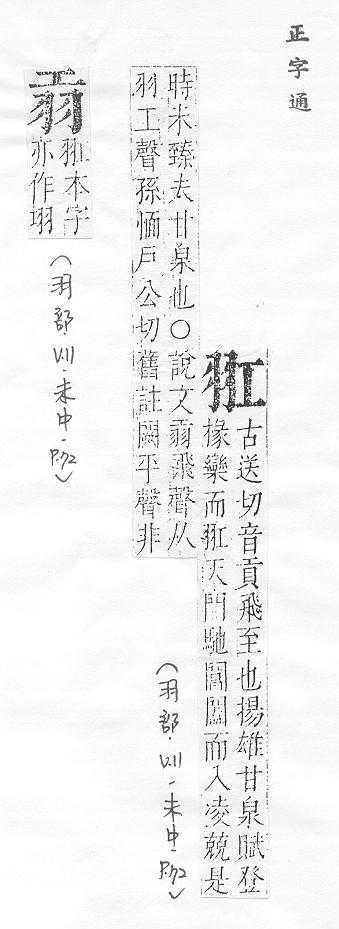 正字通
𦐇
古送切音貢飛至也揚雄甘泉賦登
椽欒而𦐇天門馳閶闔而入凌兢是
時未臻夫甘泉也○說文𦏺飛聲从
羽工聲孫愐戶公切舊註闕平聲非
(羽部.卯.1.未中.P.72)
𦏺
𦐇本字
亦作翃